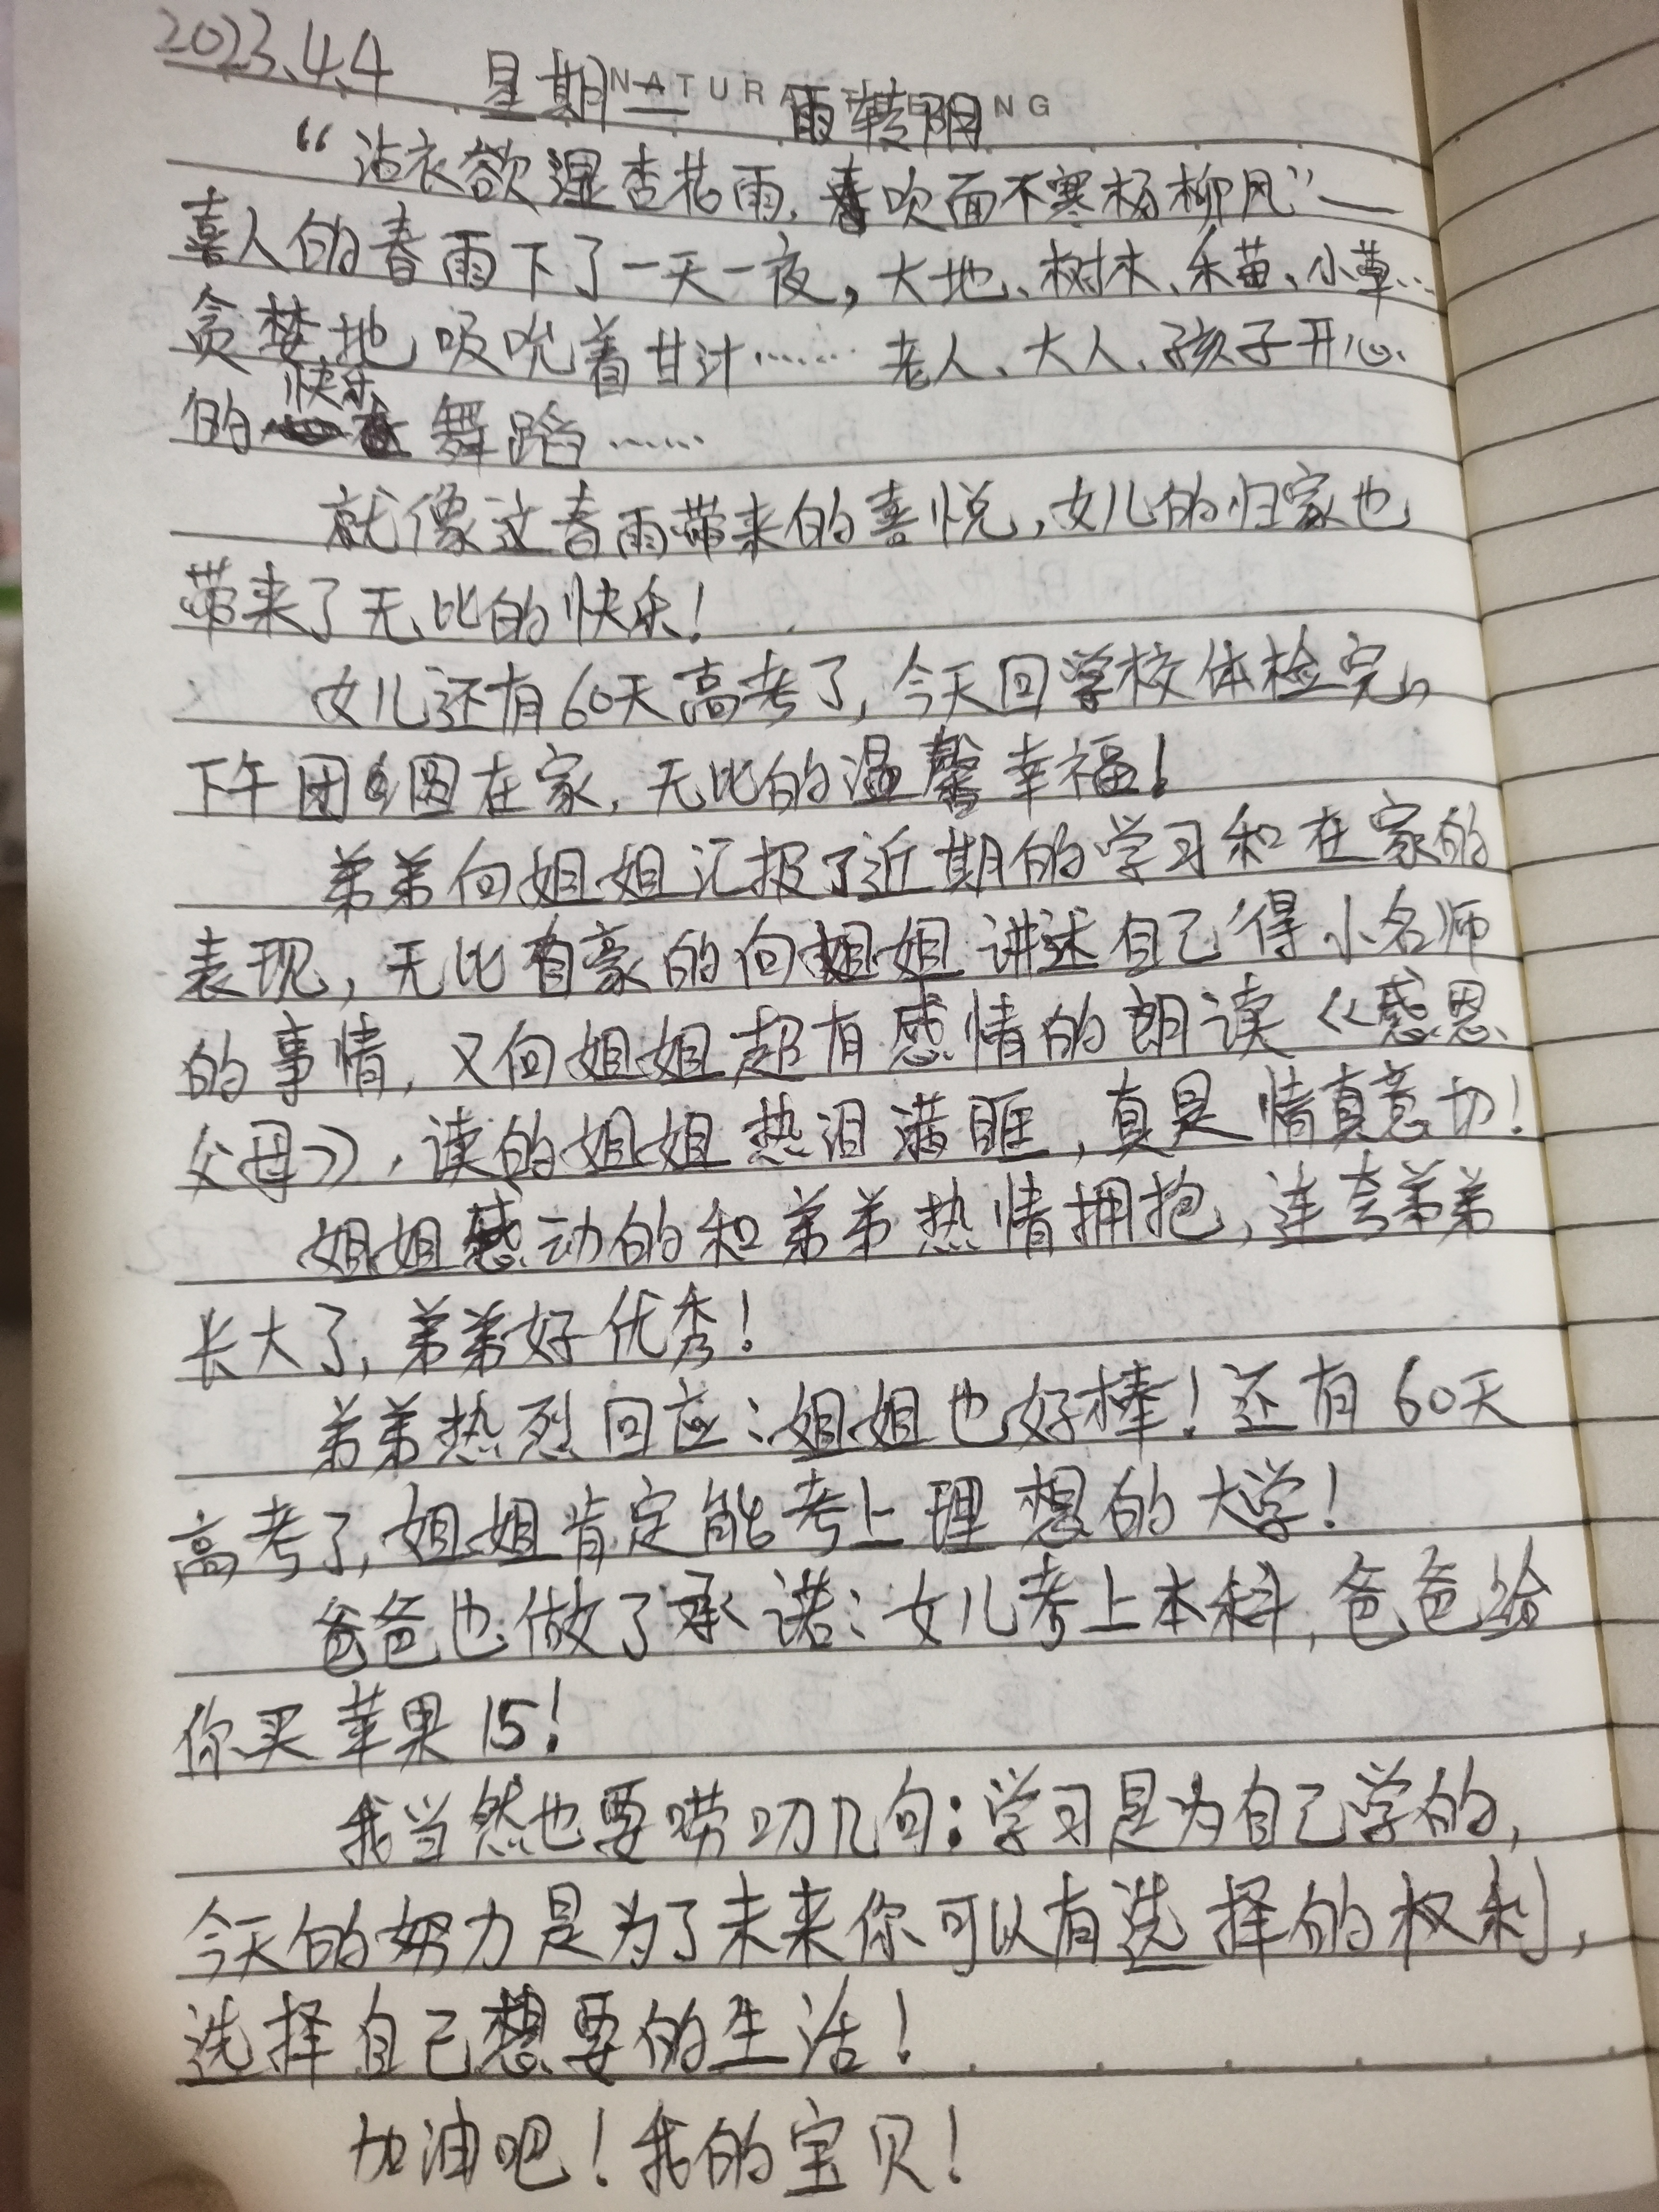 2023.4.4 星期二 雨转阴
NATURAL FEELING
“沾衣欲湿杏花雨,吹面不寒杨柳风”—
喜人的春雨下了一天一夜,大地、树林、禾苗、小草…
贪婪地吸吮着甘汁……老人、大人、孩子开心
的快乐舞蹈……
就像这春雨带来的喜悦,女儿的归家也
带来了无比的快乐!
女儿还有60天高考了,今天回学校体检完,
下午团圆在家,无比的温馨幸福!
弟弟向姐姐汇报了近期的学习和在家的
表现,无比自豪的向姐姐讲述自己得小名师
的事情,又向姐姐超有感情的朗读《感恩
父母》,读的姐姐热泪满眶,真是情真意切!
姐姐感动的和弟弟热情拥抱,连夸弟弟
长大了,弟弟好优秀!
弟弟热烈回应:姐姐也好棒!还有60天
高考了,姐姐肯定能考上理想的大学!
爸爸也做了承诺:女儿考上本科,爸爸给
你买苹果15!
我当然也要唠叨几句:学习是为自己学的,
今天的努力是为了未来你可以有选择的权利,
选择自己想要的生活!
加油吧!我的宝贝!